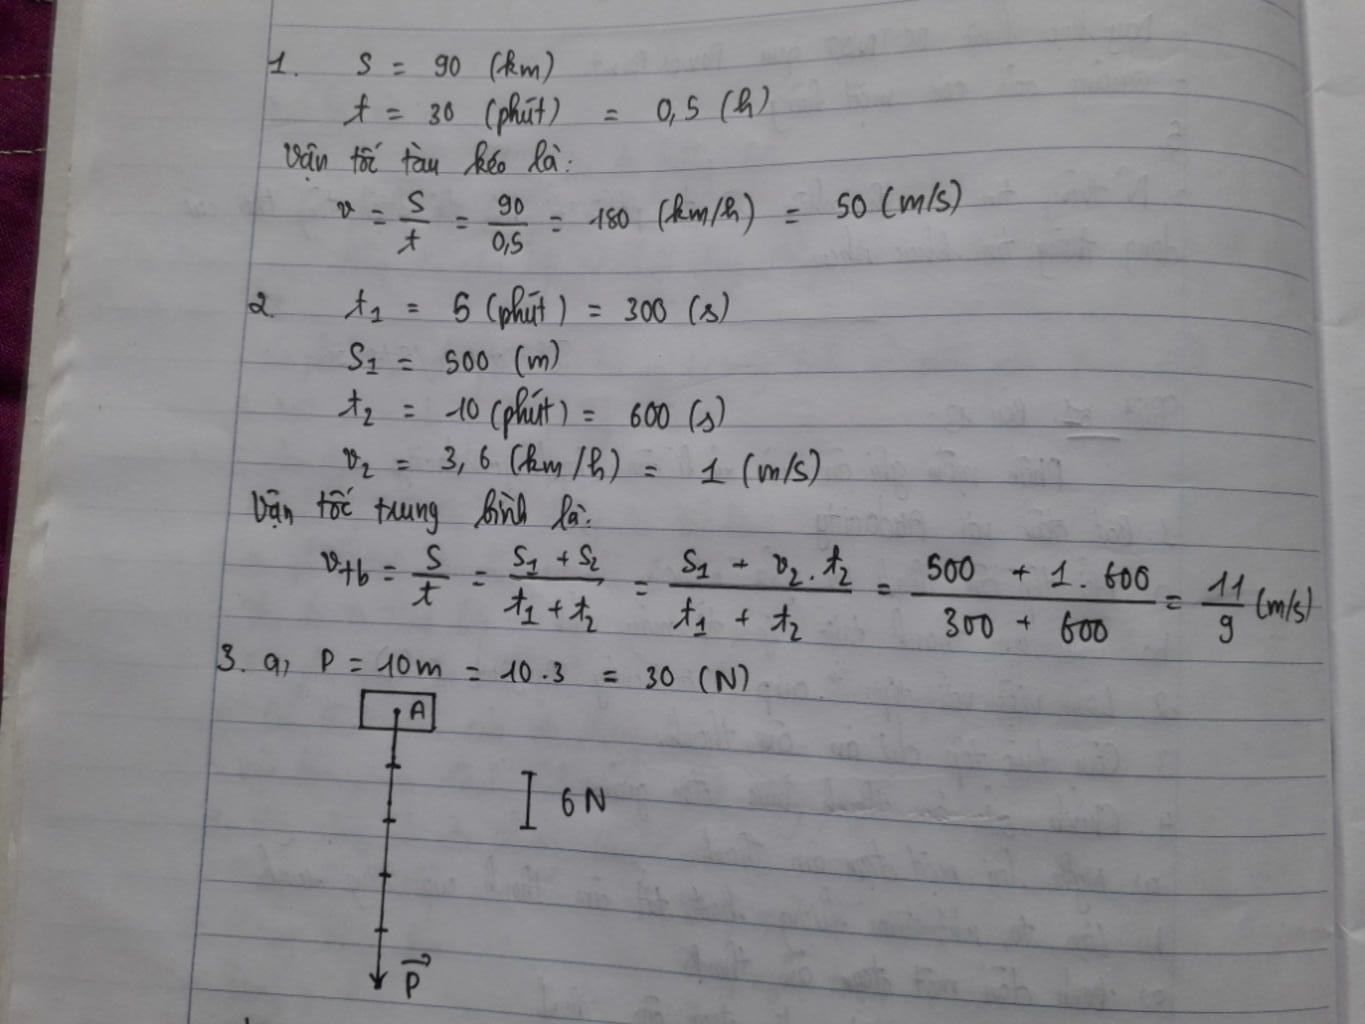 1. S = 90 (km)
t = 30 (phút) = 0,5 (h)
Vận tốc tàu kéo là:
v = S/t = 90/0,5 = 180 (km/h) = 50 (m/s)
2 t₁ = 5 (phút) = 300 (s)
S₁ = 500 (m)
t₂ = 10 (phút) = 600 (s)
v₂ = 3,6 (km/h) = 1 (m/s)
Vận tốc trung bình là:
vtb = S/t = (S₁ + S₂)/(t₁ + t₂) = (S₁ + v₂.t₂)/(t₁ + t₂) = (500 + 1.600)/(300 + 600) = 11/9 (m/s)
3. a, P = 10m = 10.3 = 30 (N)
A
6 N
P⃗